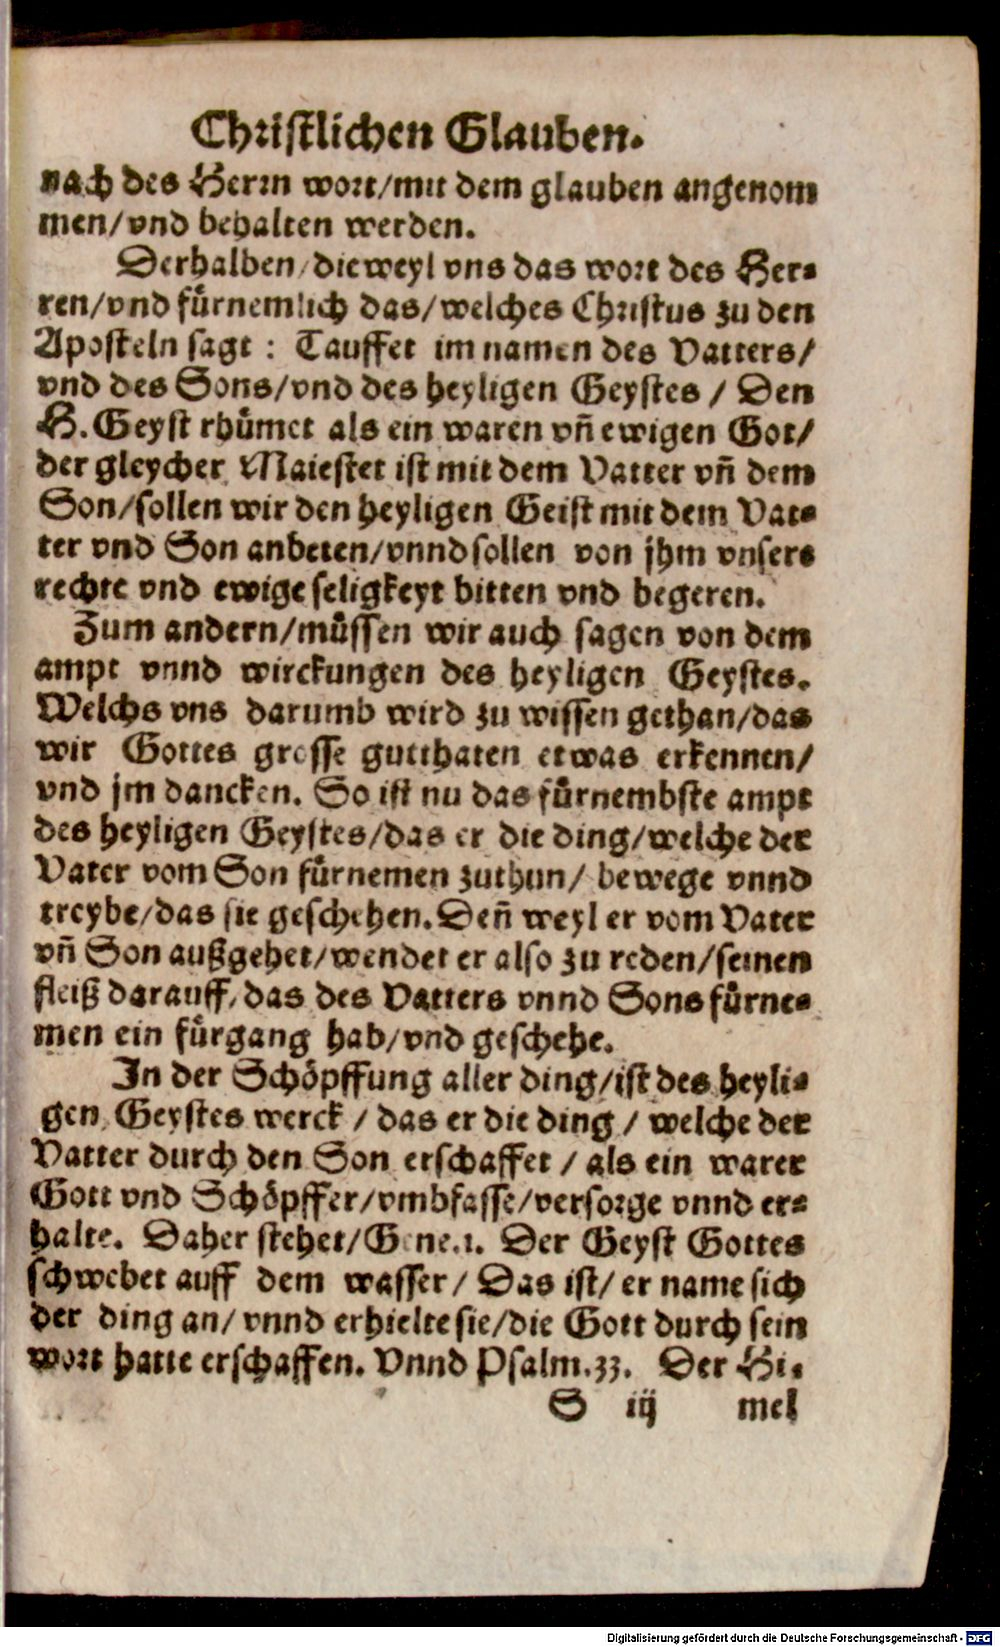 Christlichen Glauben.
nach des Herrn wort/mit dem glauben angenom
men/vnd behalten werden.
Derhalben/dieweyl vns das wort des Her-
ren/vnd fürnemlich das/welches Christus zu den
Aposteln sagt : Tauffet im namen des Vatters/
vnd des Sons/vnd des heyligen Geystes / Den
H. Geyst rhümet als ein waren vñ ewigen Got/
der gleycher Maiestet ist mit dem Vatter vñ dem
Son/sollen wir den heyligen Geist mit dem Vat-
ter vnd Son anbeten/vnnd sollen von jhm vnsers
rechte vnd ewige seligkeyt bitten vnd begeren.
Zum andern/müssen wir auch sagen von dem
ampt vnnd wirckungen des heyligen Geystes.
Welchs vns darumb wird zu wissen gethan/das
wir Gottes grosse gutthaten etwas erkennen/
vnd jm dancken. So ist nu das fürnembste ampt
des heyligen Geystes/das er die ding/welche der
Vater vom Son fürnemen zuthun/ bewege vnnd
treybe/das sie geschehen. Deñ weyl er vom Vater
vñ Son außgehet/wendet er also zu reden/seinen
fleiß darauff/das des Vatters vnnd Sons fürne-
men ein fürgang hab/vnd geschehe.
In der Schöpffung aller ding/ist des heyli-
gen Geystes werck / das er die ding / welche der
Vatter durch den Son erschaffet / als ein warer
Gott vnd Schöpffer/vmbfasse/versorge vnnd er-
halte. Daher stehet/Gene.1. Der Geyst Gottes
schwebet auff dem wasser/ Das ist/ er name sich
der ding an/ vnnd erhielte sie/die Gott durch sein
wort hatte erschaffen. Vnnd Psalm.33. Der Hi-
S iij mel
Digitalisierung gefördert durch die Deutsche Forschungsgemeinschaft - DFG